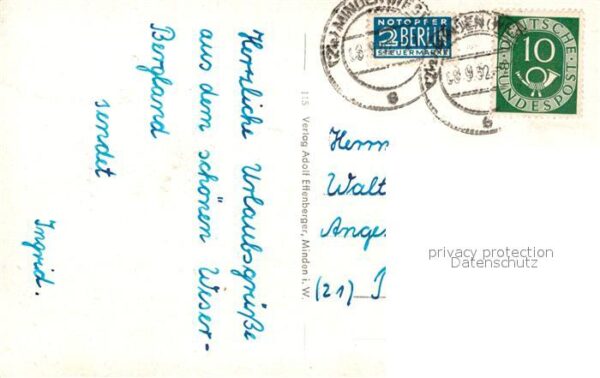 Herzliche Urlaubsgrüße
aus dem schönen Weser-
Bergland
sendet
Ingrid.
115 Verlag Adolf Effenberger, Minden i. W.
NOTOPFER
2 BERLIN
STEUERMARKE
DEUTSCHE
10
BUNDESPOST
MINDEN
e
Herrn
Walt
Ange
(21)
privacy protection
Datenschutz